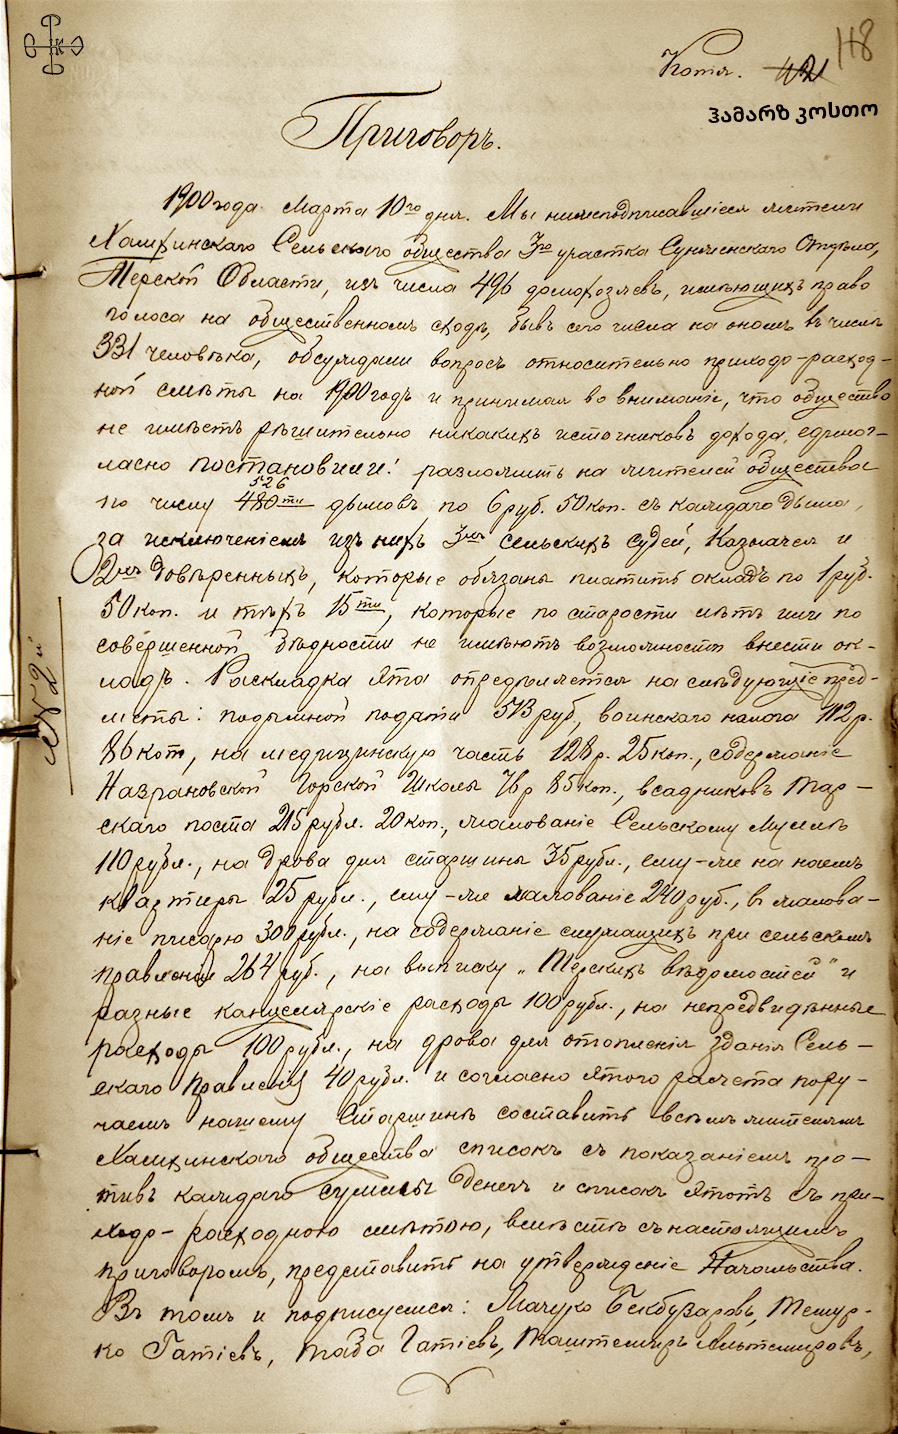 118
Копія.
ჰამარზ კოსთო
Приговоръ.
1900 года Марта 10го дня. Мы нижеподписавшіеся жители
Хамхинскаго Сельскаго общества 3го участка Сунженскаго Отдѣла,
Терской Области, изъ числа 496 домохозяевъ, имѣющихъ право
голоса на общественномъ сходѣ, бывъ сего числа на ономъ въ числѣ
331 человѣка, обсуждали вопросъ относительно приходо-расход-
ной смѣты на 1900 годъ и принимая во вниманіе, что общество
не имѣетъ рѣшительно никакихъ источниковъ дохода, единог-
ласно постановили: разложить на жителей общества
526
по числу 480ти дымовъ по 6 руб. 50 коп. съ каждаго дыма,
за исключеніемъ изъ нихъ 3хъ сельскихъ судей, Казначея и
2хъ Довѣренныхъ, которые обязаны платить окладъ по 1 руб.
50 коп. и тѣхъ 15ти, которые по старости лѣтъ или по
совершенной бѣдности не имѣютъ возможности внести ок-
ладъ. Раскладка эта опредѣляется на слѣдующіе пред-
меты: подымной подати 513 руб, воинскаго налога 112 р.
86 коп, на медицинскую часть 128 р. 25 коп., содержаніе
Назрановской Горской Школы 76 р 85 коп., всадниковъ Тар-
скаго поста 215 рубл. 20 коп., жалованіе Сельскому Муллѣ
110 рубл., на дрова для старшины 35 рубл., ему-же на наемъ
квартиры 25 рубл., ему-же жалованіе 240 руб., в жалова-
ніе писарю 300 рубл., на содержаніе служащихъ при сельскомъ
правленіи 264 руб., на выписку „Терскихъ вѣдомостей" и
разные канцелярскіе расходы 100 рубл., на непредвидѣнные
расходы 100 рубл., на дрова для отопленія зданія Сель-
скаго Правленія 40 рубл. и согласно этого расчета пору-
чаемъ нашему Старшинѣ составить всѣмъ жителямъ
Хамхинскаго общества списокъ съ показаніемъ про-
тивъ каждаго суммы денегъ и списокъ этотъ съ при-
ходо-расходною смѣтою, вмѣстѣ съ настоящимъ
приговоромъ, представить на утвержденіе Начальства.
Въ томъ и подписуемся: Мачуко Бекбузаровъ, Темур-
ко Гатіевъ, Таба Гатіевъ, Таштемиръ Альтемировъ,
№ 2й